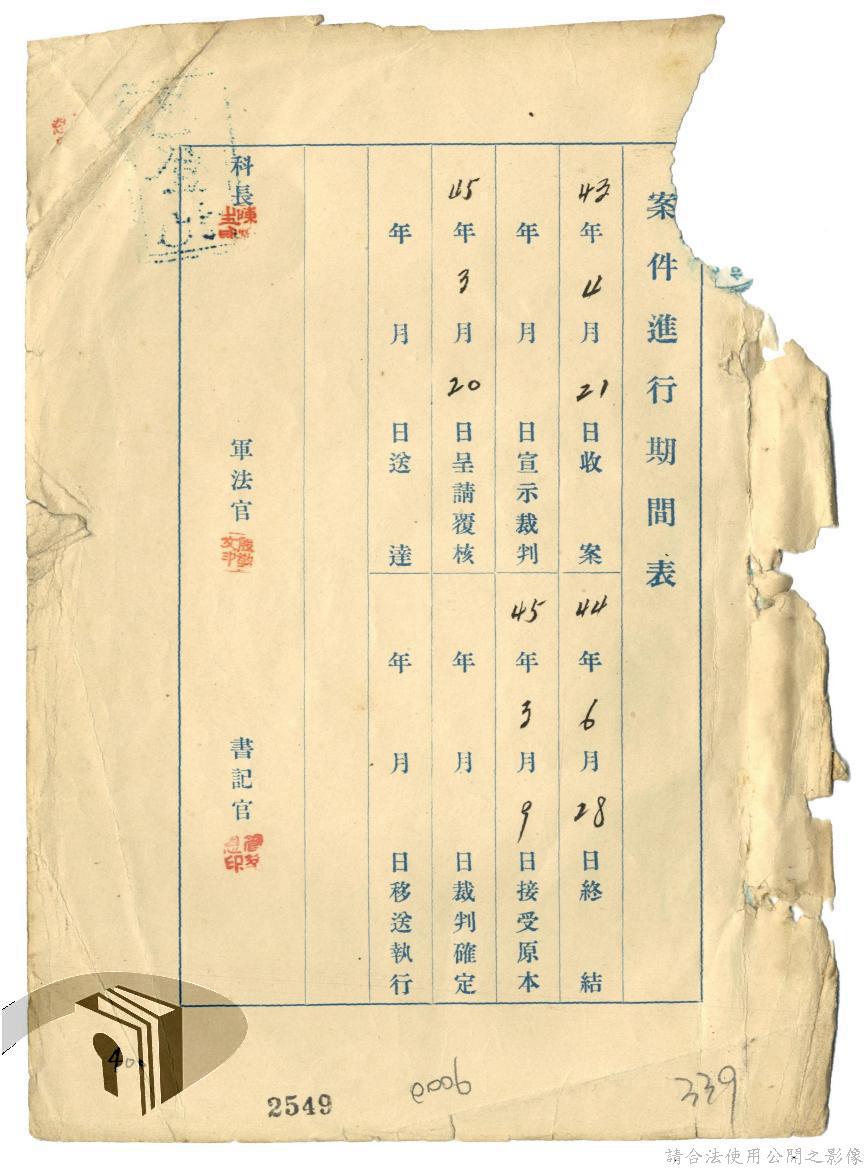 案件進行期間表
43年4月21日收案
44年6月28日終結
年月日宣示裁判
45年3月9日接受原本
45年3月20日呈請覆核
年月日裁判確定
年月日送達
年月日移送執行
科長
軍法官
書記官
2549
339
請合法使用公開之影像